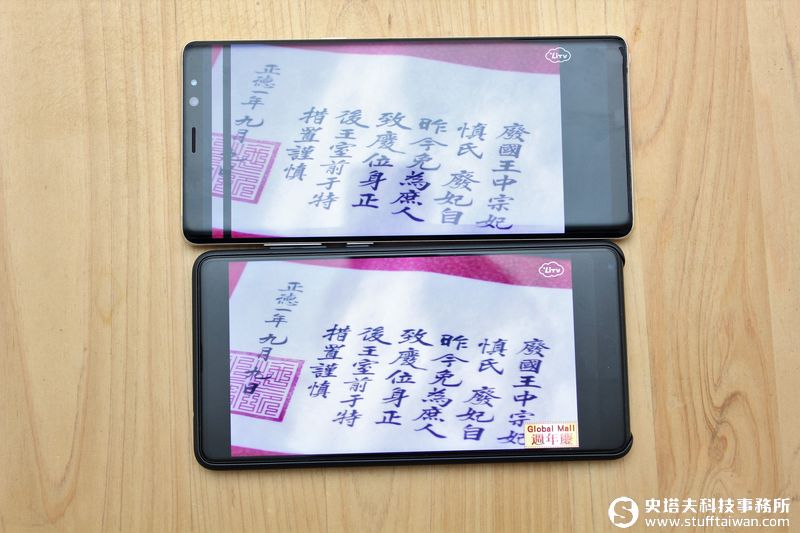 LiTV
廢國王中宗妃
慎氏 廢妃自
昨今免為庶人
致慶位身正
後王室前于特
措置謹慎
正德一年 九月
LiTV
廢國王中宗妃
慎氏 廢妃自
昨今免為庶人
致慶位身正
後王室前于特
措置謹慎
正德一年 九月 九日
Global Mall
週年慶
S 史塔夫科技事務所
www.stufftaiwan.com